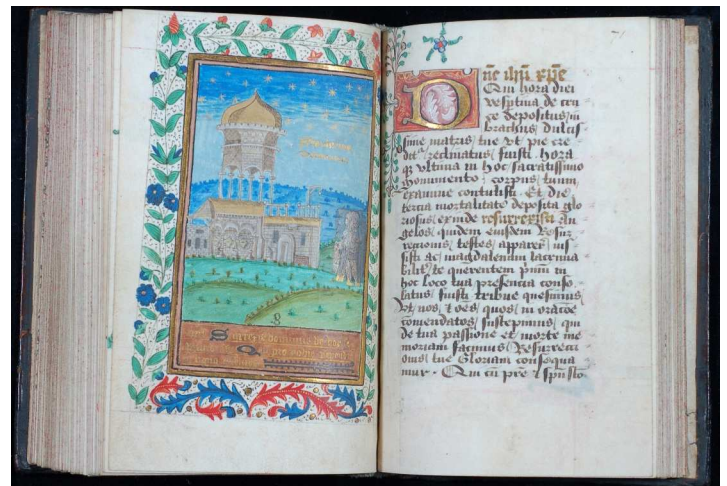 Surrexit dominus de
Qui pro nobis
Dne ihu xpe
Qui hora diei
vesptina de cru
ce depositus/ in
brachiis/ dulcis
sime matris/ tue vt pie cre
reclinatus/ fuisti hora
vltima in hoc sacratissimo
monumento/ corpus/ tuum
examine contulisti Et die
tercia mortalitate deposita glo
riosus/ exinde resurrexisti An
gelos/ quidem eiusdem Resur
rectionis/ testes/ apparere ius
sisti ac/ magdalenam lacrima
bilit te querentem pmum in
hoc loco tua presencia conso
latus/ fuisti tribue quesumus
Vt nos/ et oes/ quos/ in oracoe
comendatos/ suscepimus/ qui
de tua passione et morte me
moriam facimus/ Resurrecti
onis/ tue Gloriam consequa
mur. Qui cu pre et spu sto